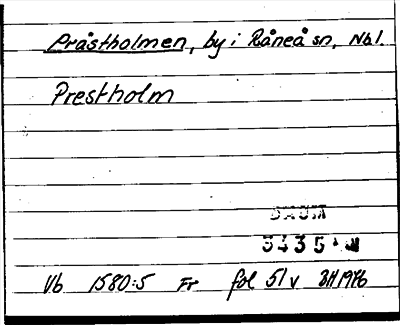 Prästholmen, by i Råneå sn, Nbl.
Prestholm
DAUM
5435
Vb 1580:5 Fr fol 51 v BH 1976